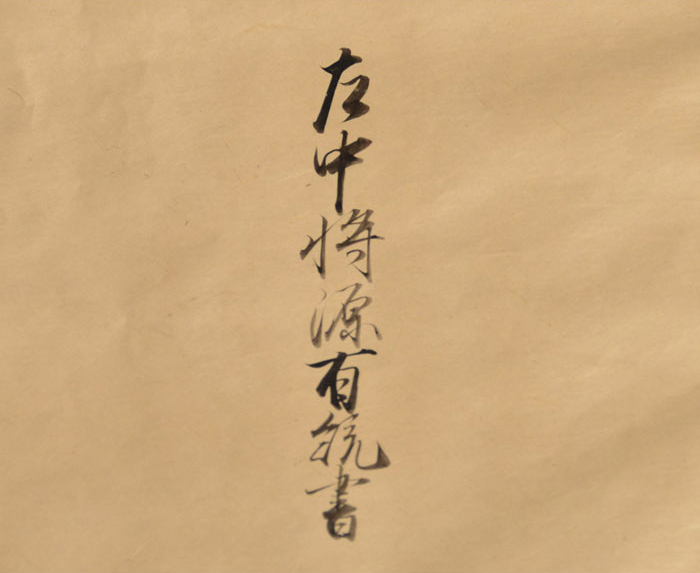 左中将源有統書